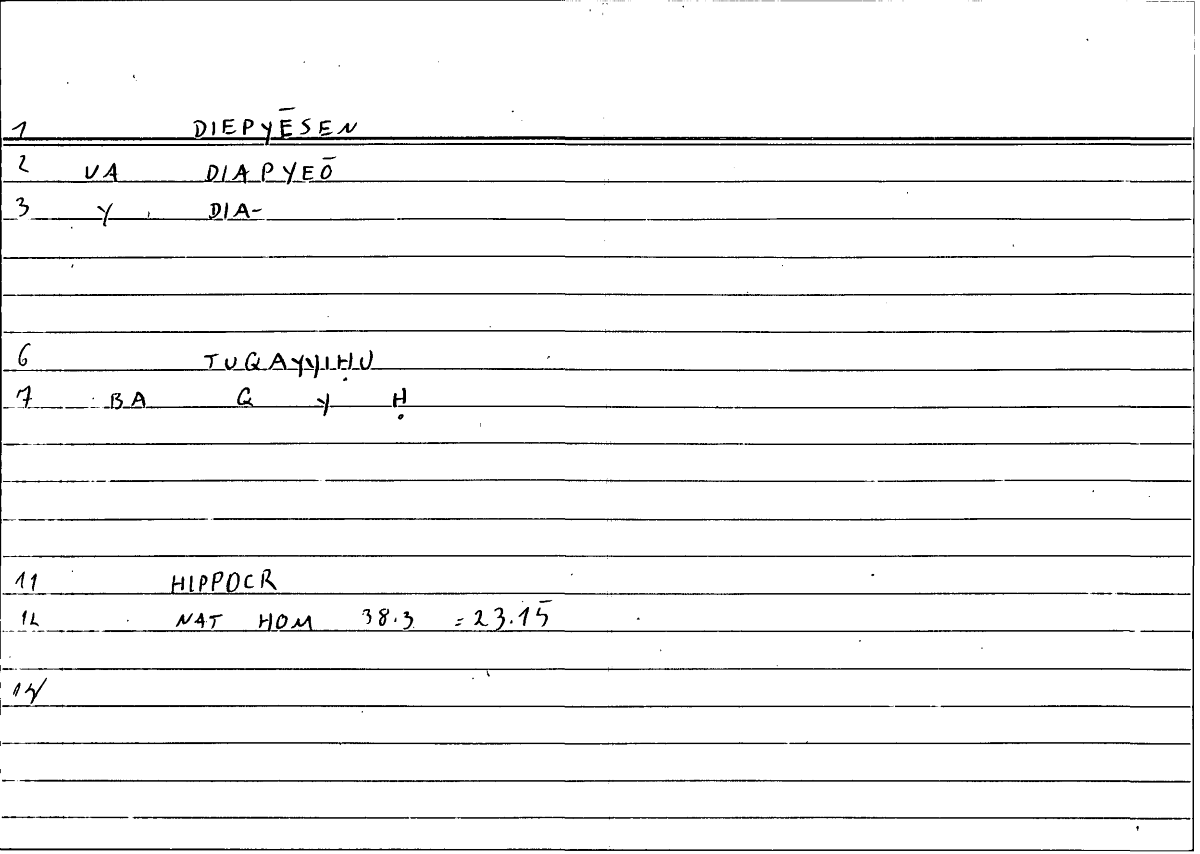 1 DIEPYĒSEN
2 VA DIAPYEŌ
3 Y DIA-
6 TUQAYYIḤU
7 BA Q Y Ḥ
11 HIPPOCR
12 NAT HOM 38.3 = 23.15